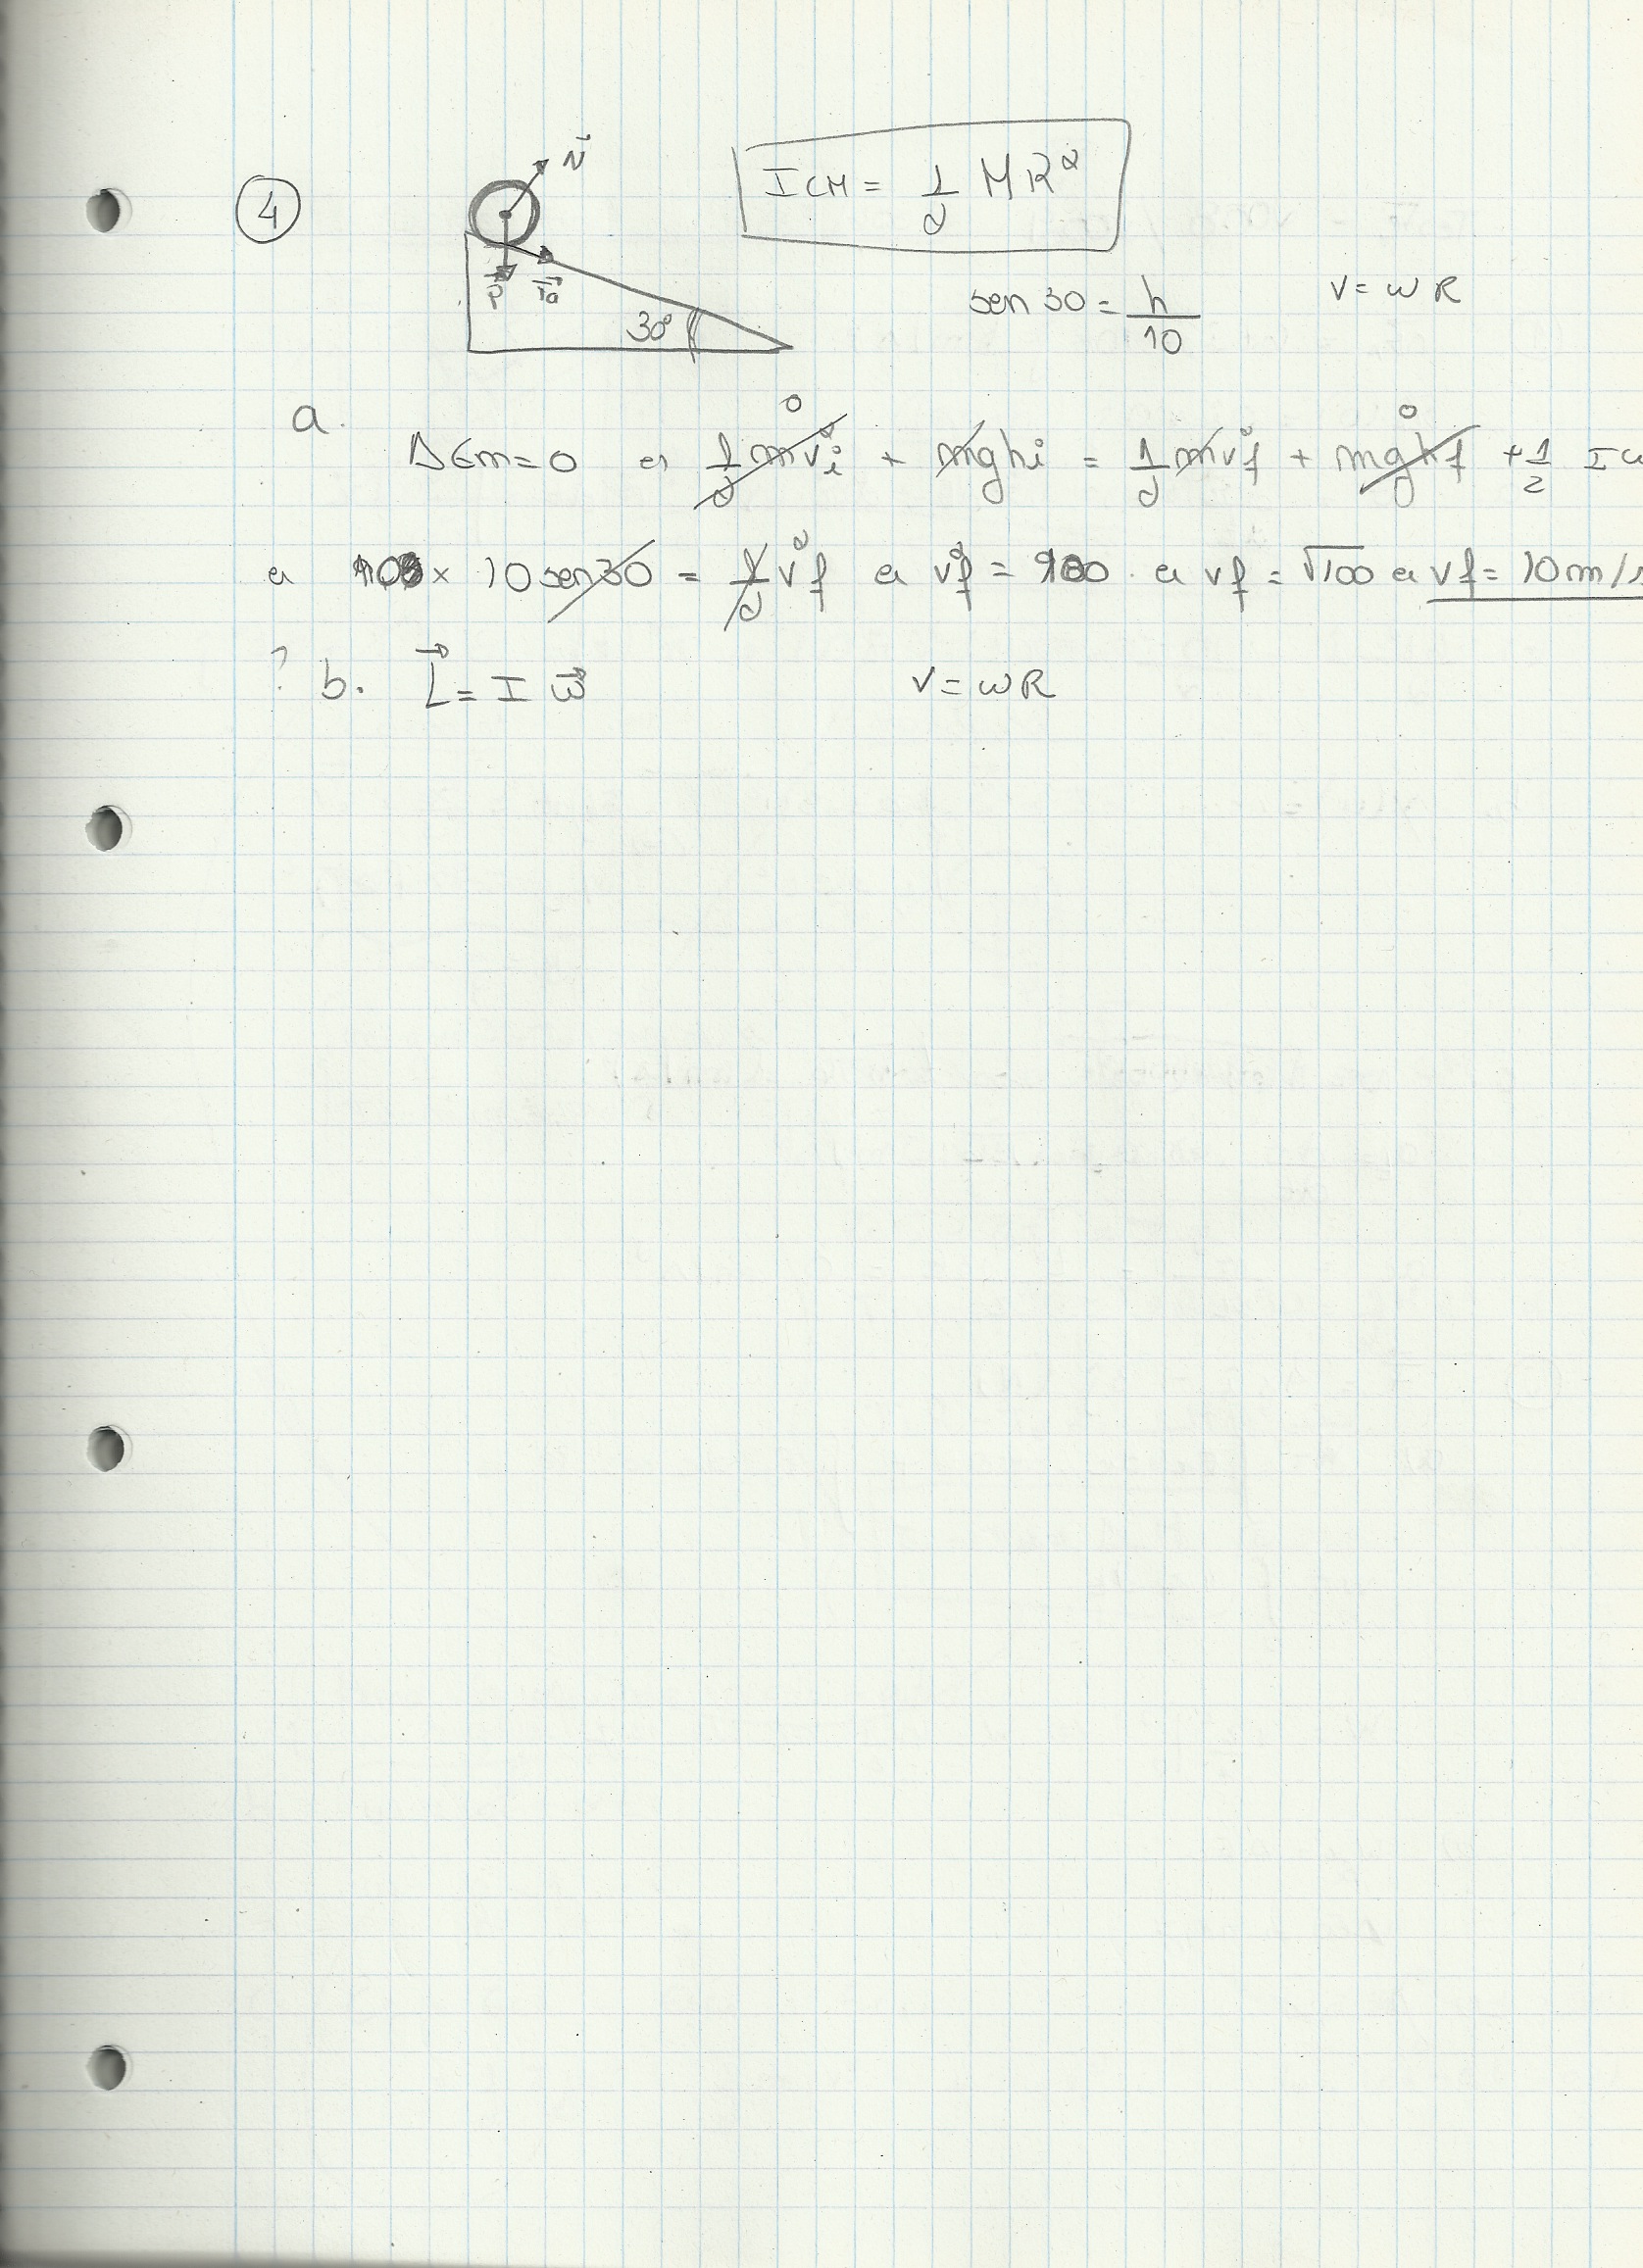 ④
N⃗
I CM = 1/2 M R²
P⃗
30°
sen 30 = h/10
v = ω R
a.
ΔEm = 0 ⇔ 1/2 m vi² + m g hi = 1/2 m vf² + m g hf + 1/2 I
0
0
⇔ 10 × 10 sen 30 = 1/2 vf² ⇔ vf² = 100 ⇔ vf = √100 ⇔ vf = 10 m/
? b. L⃗ = I ω⃗
v = ω R